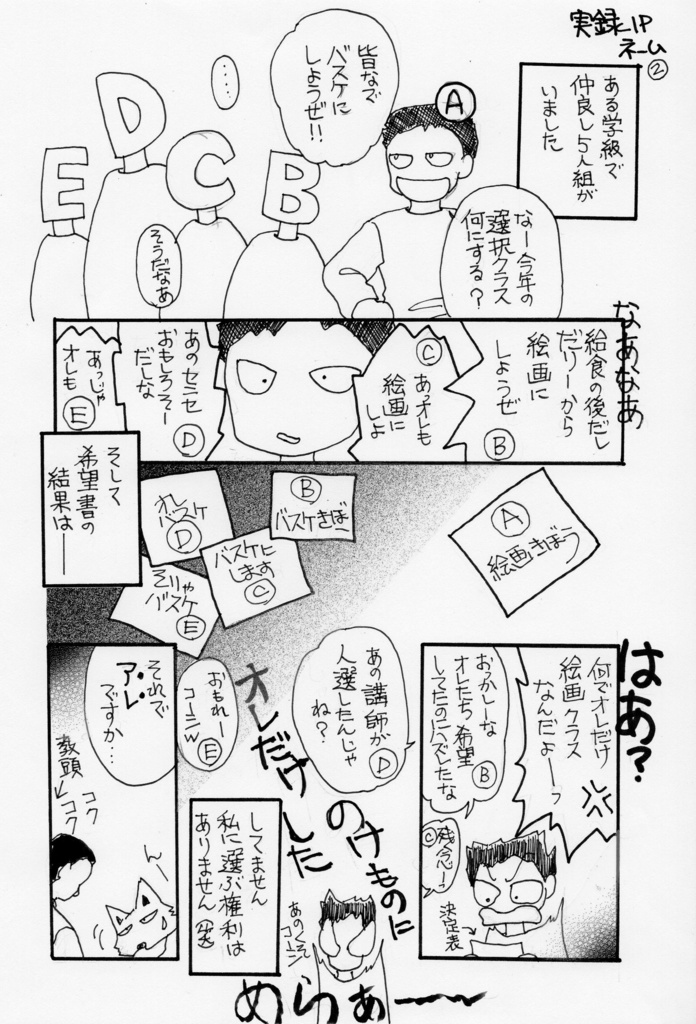 実録1P
ネーム
②
ある学級で
仲良し5人組が
いました
A
皆なで
バスケに
しようぜ!!
‥‥
D
C
E
B
なー今年の
選択クラス
何にする?
そうだなあ
なあなあ
給食の後だし
だりーから
絵画に
しようぜ
B
C
あっオレも
絵画に
しよ
あのセニセ
おもしろそー
だしな
D
あっじゃ
オレも
E
そして
希望書の
結果は――
A
絵画きぼう
B
バスケきぼー
オレ
バスケ
D
バスケに
します
C
そりゃ
バスケ
E
はあ?
何でオレだけ
絵画クラス
なんだよーっ
おっかしーな
オレたち希望
してたのにハズレたな
B
C
残念ー
決定表
あの講師が
人選したんじゃ
ね?
D
おもれー
コーシw
E
オレだけ
のけものに
した
あのくそ
コーシ
めらぁ――
してません
私に選ぶ権利は
ありません
それで
アレ
ですか…
教頭
コク
コク
んー